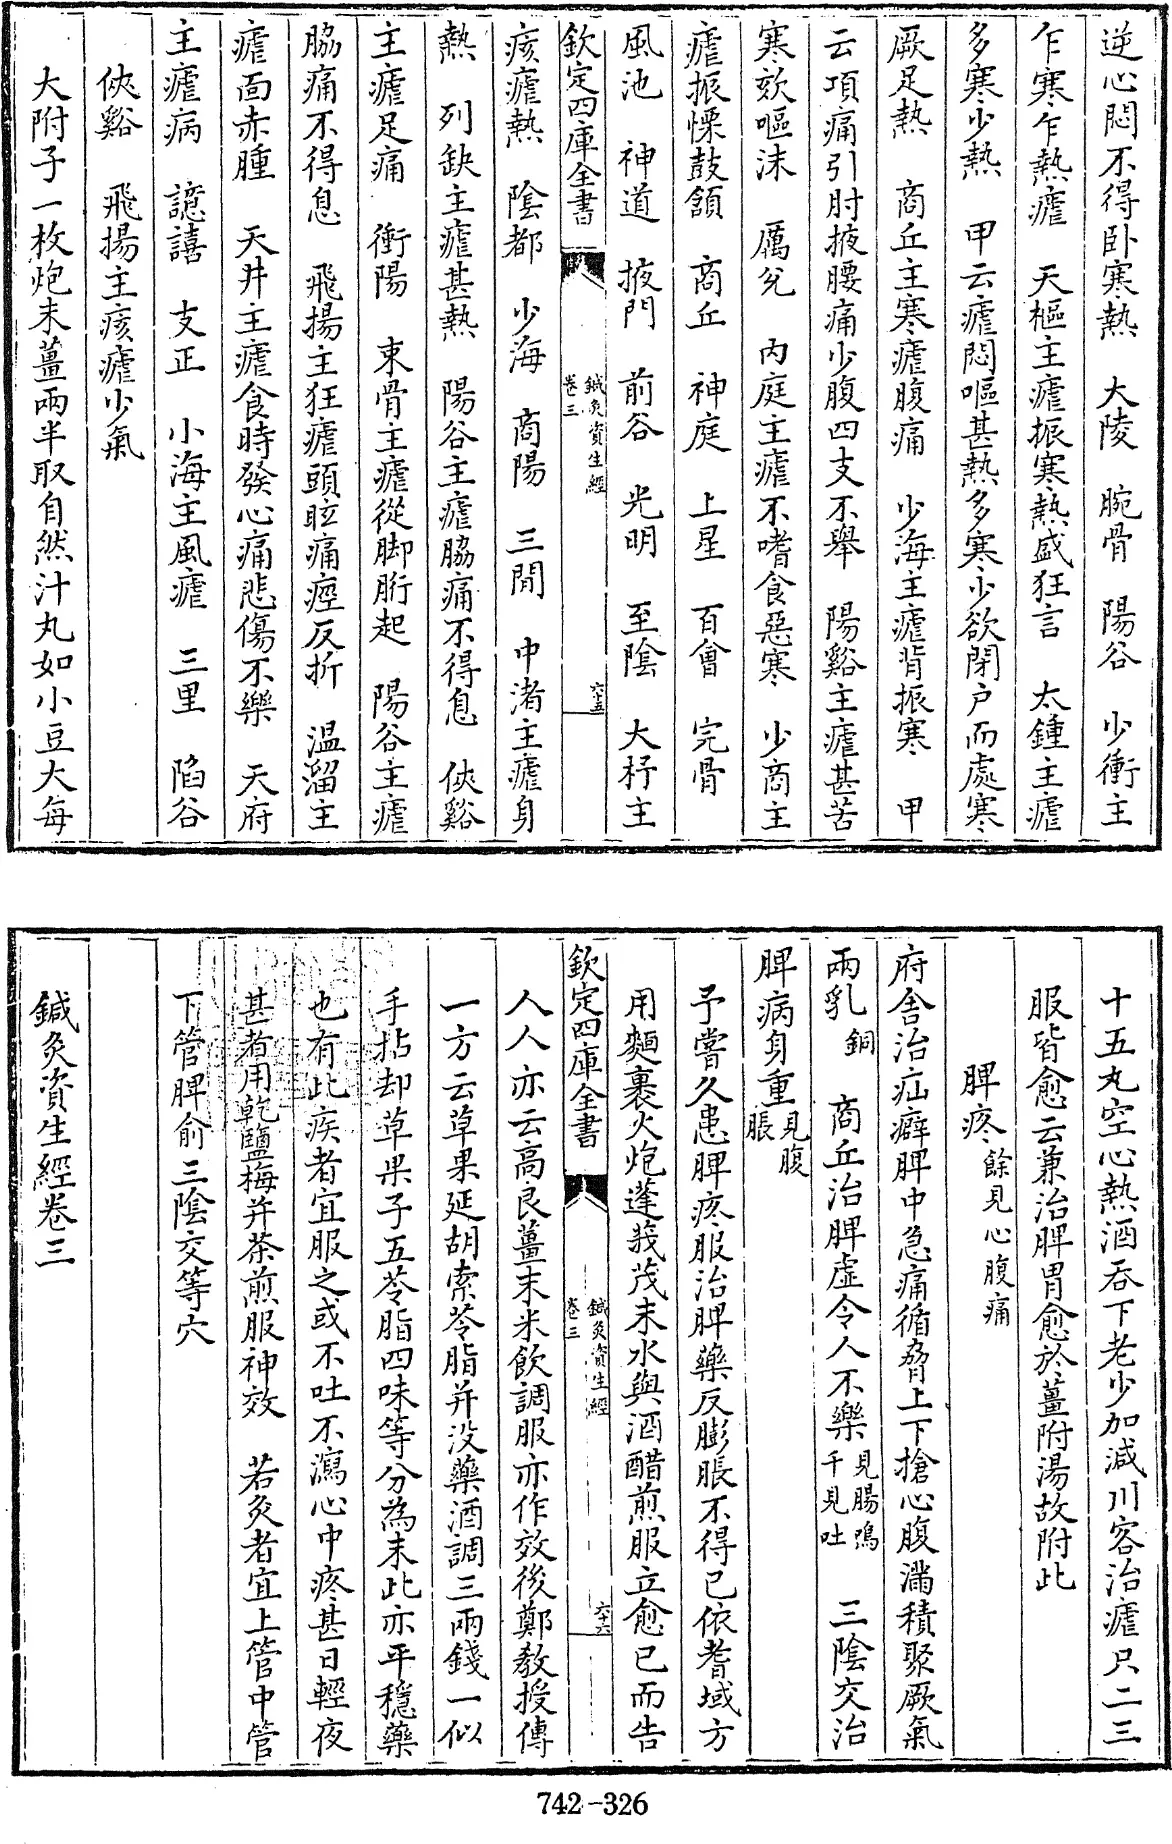 逆心悶不得卧寒熱　大陵　腕骨　陽谷　少衝主
乍寒乍熱瘧　天樞主瘧振寒熱盛狂言　太鍾主瘧
多寒少熱　甲云瘧悶嘔甚熱多寒少欲閉户而處寒
厥足熱　商丘主寒瘧腹痛　少海主瘧背振寒　甲
云項痛引肘掖腰痛少腹四支不舉　陽谿主瘧甚苦
寒欬嘔沫　厲兊　内庭主瘧不嗜食惡寒　少商主
瘧振慄鼓頷　商丘　神庭　上星　百會　完骨
風池　神道　掖門　前谷　光明　至陰　大杼主
欽定四庫全書
鍼灸資生經
卷三
六十五
痎瘧熱　陰都　少海　商陽　三間　中渚主瘧身
熱　列缺主瘧甚熱　陽谷主瘧脇痛不得息　俠谿
主瘧足痛　衝陽　束骨主瘧從脚胻起　陽谷主瘧
脇痛不得息　飛揚主狂瘧頭眩痛痙反折　温溜主
瘧面赤腫　天井主瘧食時發心痛悲傷不樂　天府
主瘧病　譩譆　支正　小海主風瘧　三里　陷谷
俠谿　飛揚主痎瘧少氣
大附子一枚炮末薑兩半取自然汁丸如小豆大每
十五丸空心熱酒吞下老少加減川客治瘧只二三
服皆愈云兼治脾胃愈於薑附湯故附此
脾疼餘見心腹痛
府舍治疝癖脾中急痛循脅上下搶心腹滿積聚厥氣
兩乳銅　商丘治脾虛令人不樂見腸鳴千見吐　三陰交治
脾病身重見腹脹
予嘗久患脾疼服治脾藥反膨脹不得已依耆域方
用麵裹火炮蓬莪茂末水與酒醋煎服立愈已而告
欽定四庫全書
鍼灸資生經
卷三
六十六
人人亦云高良薑末米飲調服亦作效後鄭教授傳
一方云草果延胡索苓脂并没藥酒調三兩錢一似
手拈却草果子五苓脂四味等分為末此亦平穩藥
也有此疾者宜服之或不吐不瀉心中疼甚日輕夜
甚者用乾鹽梅并茶煎服神效　若灸者宜上管中管
下管脾俞三陰交等穴
鍼灸資生經卷三
742-326